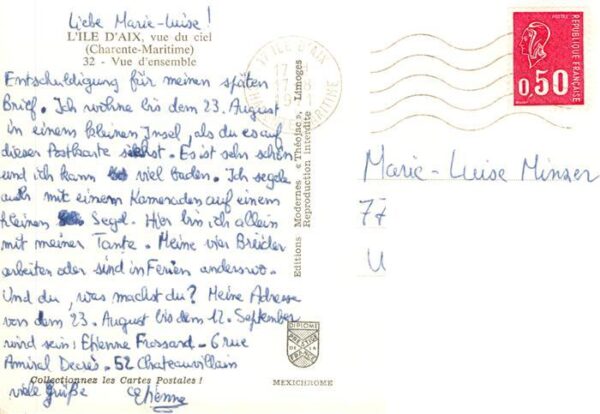 Liebe Marie-Luise!
L'ILE D'AIX, vue du ciel
(Charente-Maritime)
32 - Vue d'ensemble
Entschuldigung für meinen späten
Brief. Ich wohne bis dem 23. August
in einem kleinen Insel, als du es auf
dieser Postkarte siehst. Es ist sehr schön
und ich kann viel baden. Ich segele
auch mit einem Kameraden auf einem
kleinen Segel. Hier bin ich allein
mit meiner Tante. Meine vier Brüder
arbeiten oder sind in Ferien anderswo.
Und du, was machst du? Meine Adresse
von dem 23. August bis dem 12. September
wird sein: Etienne Frossard - 6 rue
Amiral Decrès - 52 Chateauvillain
Collectionnez les Cartes Postales !
viele Grüße Etienne
Editions Modernes « Théojac », Limoges
Reproduction interdite
17 ILE D'AIX
MARITIME
REPUBLIQUE FRANÇAISE
POSTES
0,50
Marie-Luise Minzer
77
U
DIPLOME
MEXICHROME